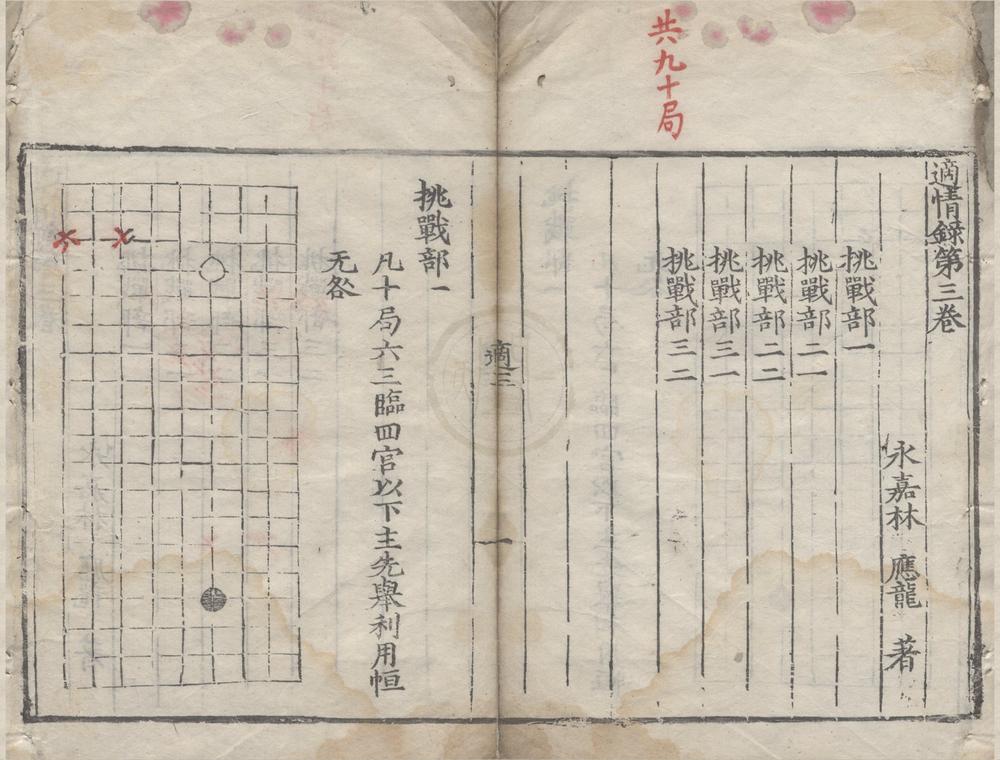 共九十局
適情錄第三卷
永嘉林 應龍 著
挑戰部一
挑戰部二一
挑戰部二二
挑戰部三一
挑戰部三二
適三
一
挑戰部一
凡十局六三臨四官以下主先舉利用恒
无咎